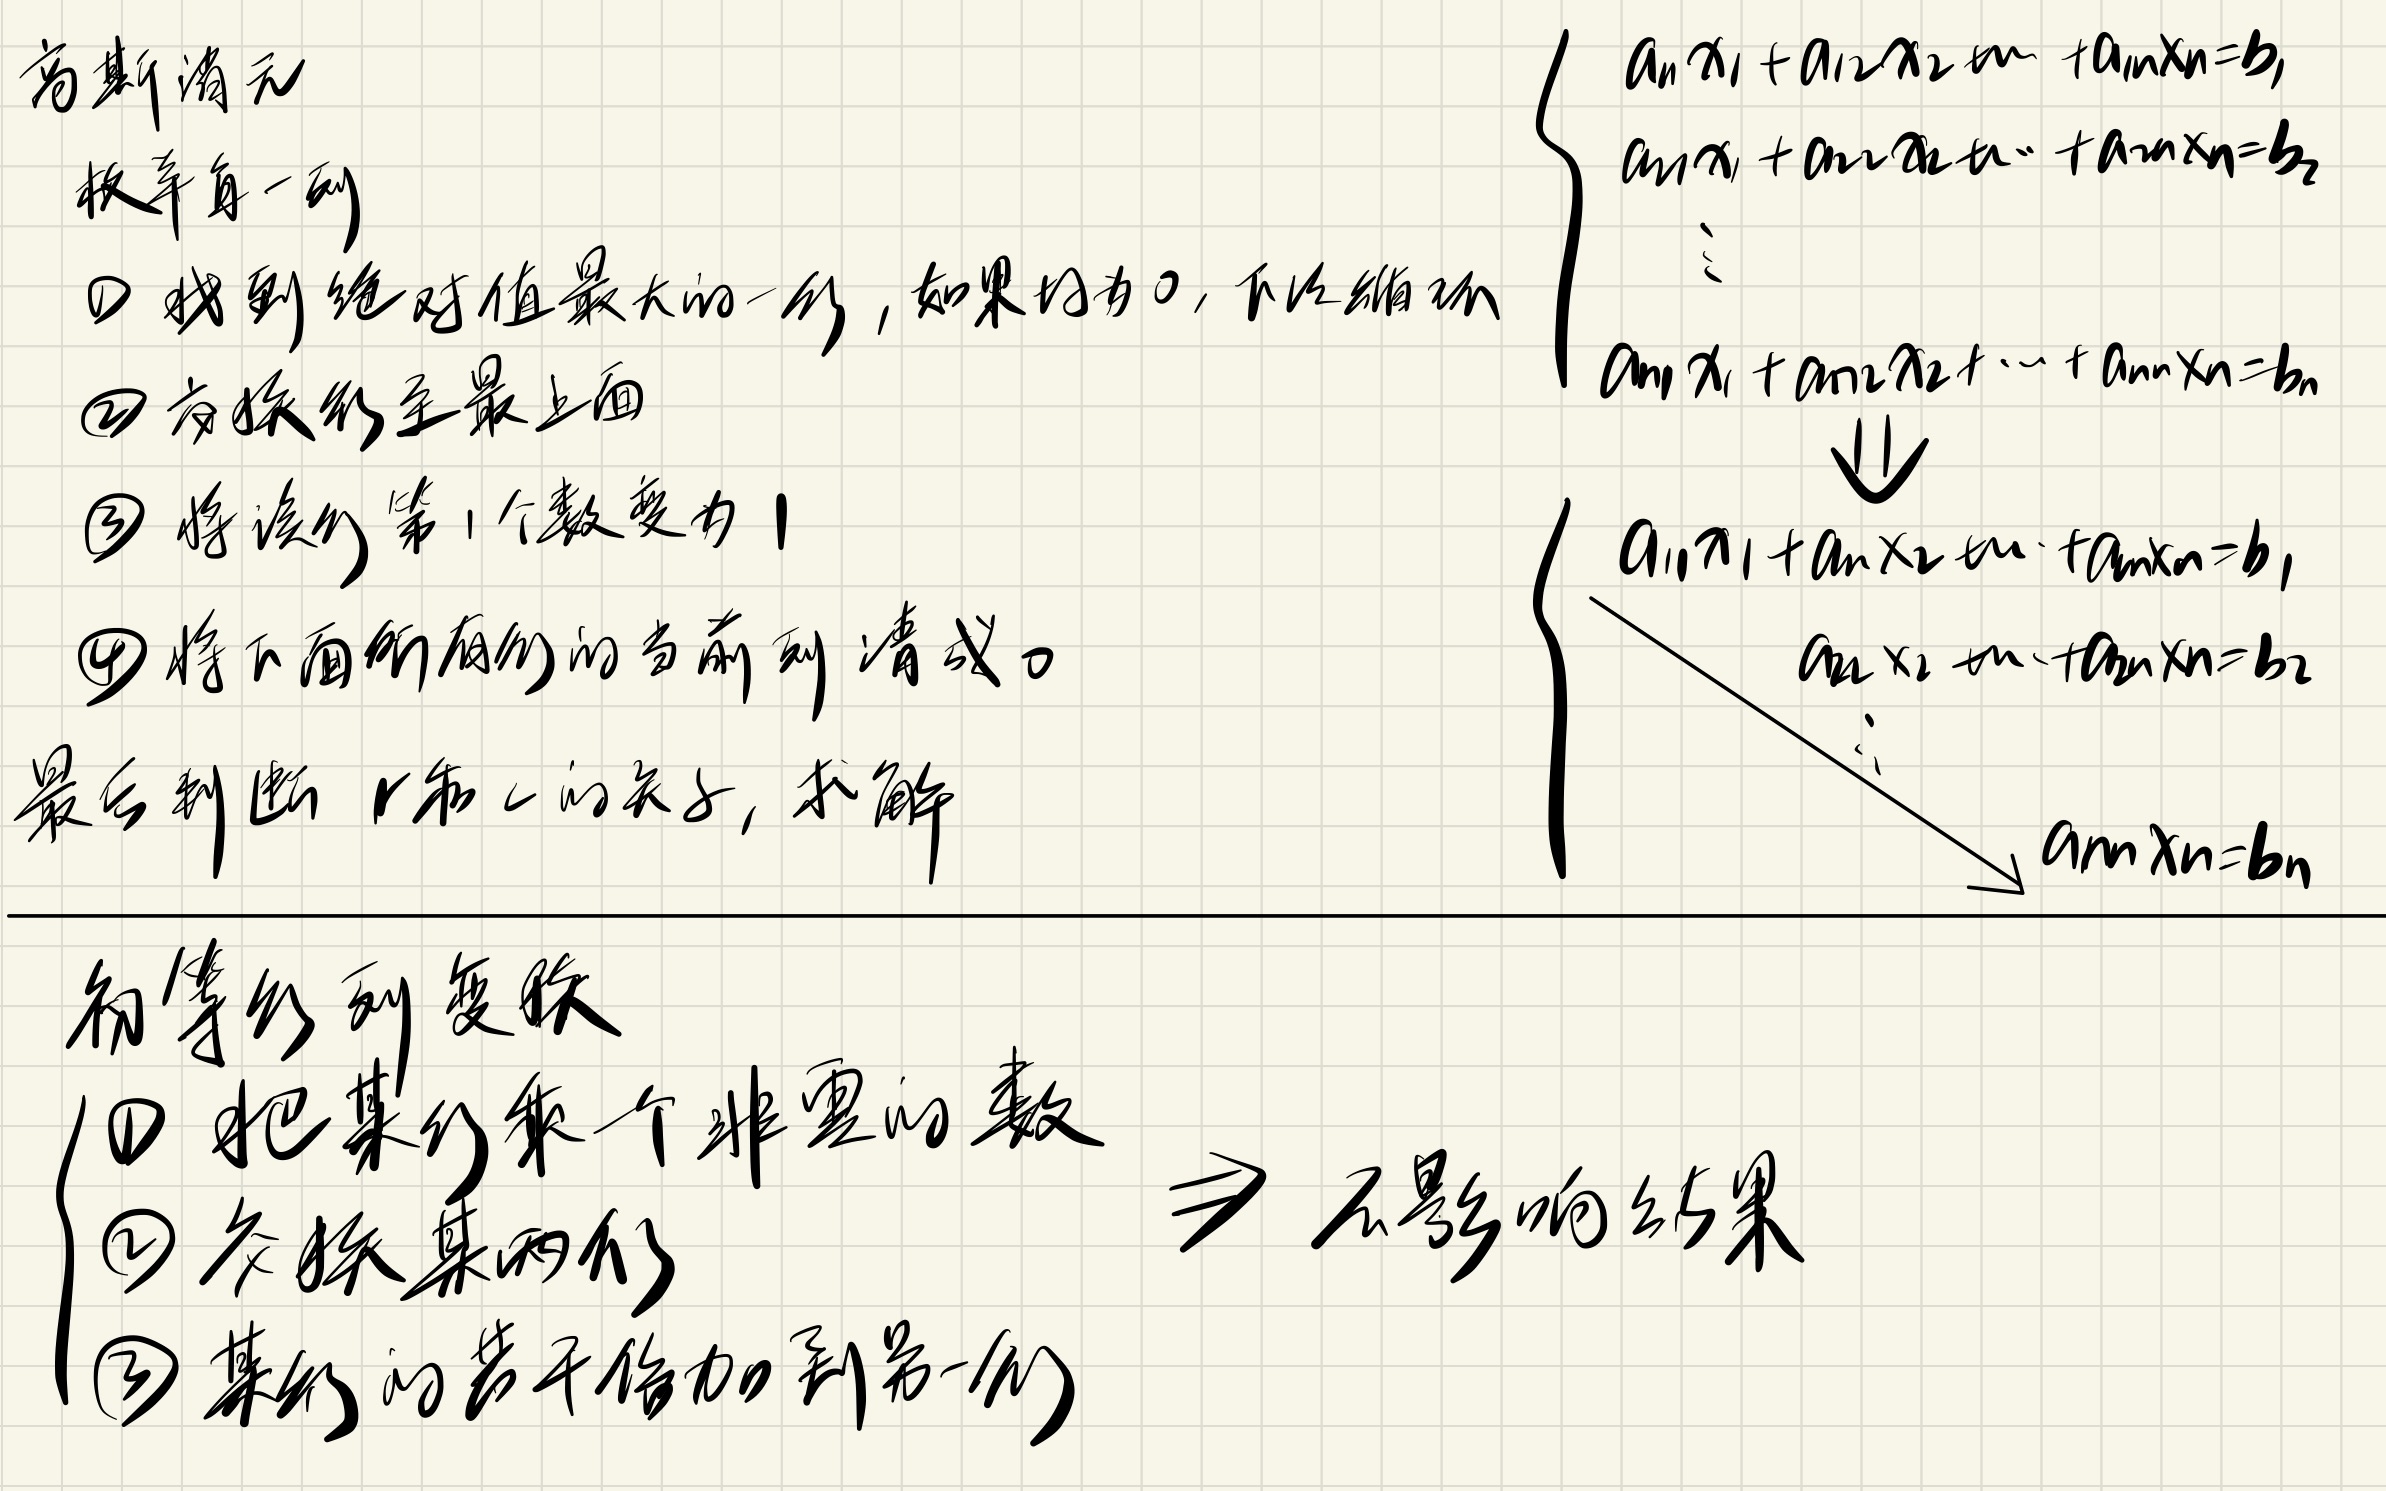 高斯消元
枚举每一列
① 找到绝对值最大的一行，如果均为0，
② 交换行至最上面
③ 将该行第1个数变为1
④ 将下面所有行的当前列清成0
最后判断 r和c的关系，求解
a11x1+a12x2+…+a1nxn=b1
a21x1+a22x2+…+a2nxn=b2
⋮
an1x1+an2x2+…+annxn=bn
⇓
a11x1+a12x2+…+a1nxn=b1
a22x2+…+a2nxn=b2
⋮
annxn=bn
初等行列变换
① 把某行乘一个非零的数
② 交换某两行
③ 某行的若干倍加到另一行
⇒ 不影响结果